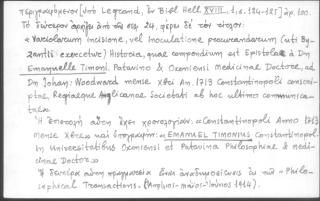 περιγραφόμενον [ὑπὸ Legrand, ἐν Bibl. Hell. XVIII. 1, σ. 124-125] ἀρ. 100.
Τὸ δεύτερον ἀρχίζει ἀπὸ τῆς σελ. 24, φέρει δὲ τὸν τίτλον:
«Variolarum incisione, vel Inoculatione procurandarum (uti By-
zantii exercetur) Historia, quae compendium est Epistolae D[ris]
Emanuelle Timoni. Patavino & Oxoniensi medicinae Doctore, ad
Dn Johan: Woodward mense Xbri An. 1713 Constantinopoli conscri-
ptae, Regiaeque Anglicanae Societati ab hoc ultimo communica-
tae»
Ἡ ἐπιστολὴ αὕτη ἔχει χρονολογίαν: «Constantinopoli Anno 1713
mense Xbris» καὶ ὑπογραφήν: «EMANUEL TIMONIUS Constantinopol.
In Universitatibus Oxoniensi et Patavina Philosophiae & medi-
cinae Doctor.»
Ἡ δευτέρα αὕτη πραγματεία εἶναι ἀναδημοσίευσις ἐκ τῶν «Philo-
sophical Transactions. (Ἀπρίλιος-Μάιος-Ἰούνιος 1914).